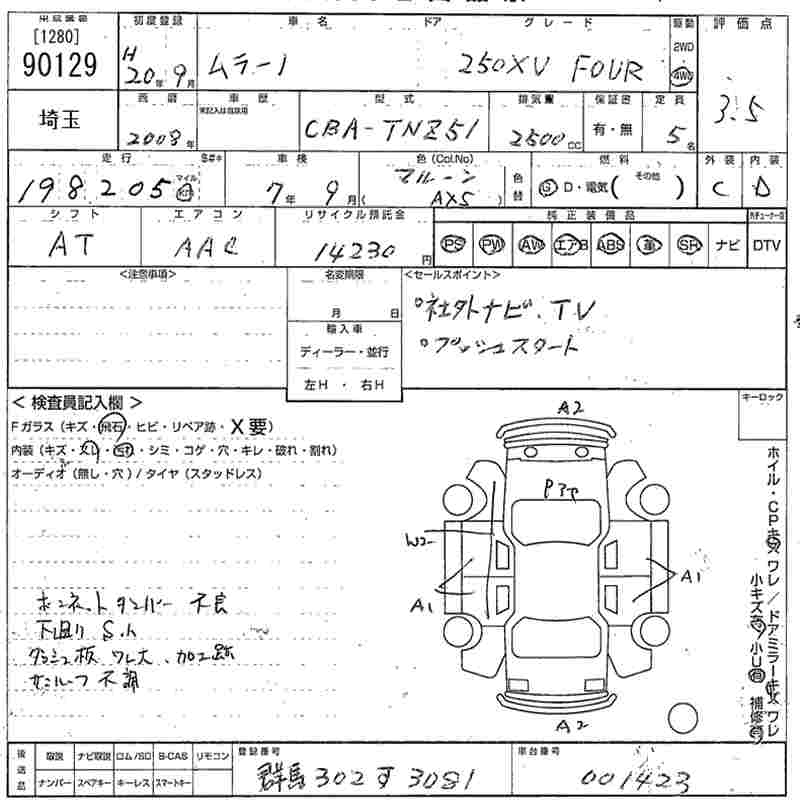 [1280]
90129
初度登録
車名
ドア
グレード
駆動
評価点
H 20年 9月
ムラーノ
250XV FOUR
2WD
4WD
3.5
埼玉
西暦
車歴
型式
排気量
定員
2008年
CBA-TNZ51
2500cc
有・無
5名
走行
車検
色(Col.No)
燃料
外装
内装
198205
マイル
7年 9月
マルーン
AX5
色替
G D・電気(その他)
C
D
シフト
エアコン
リサイクル預託金
純正装備品
AT
AAC
14230円
PS PW AW エアB ABS 革 SR ナビ DTV
<注意事項>
名変期限
<セールスポイント>
月 日
°社外ナビ.TV
輸入車
°プッシュスタート
ディーラー・並行
左H・右H
<検査員記入欄>
キーロック
Fガラス(キズ・飛石・ヒビ・リペア跡・X要)
内装(キズ・スレ・・シミ・コゲ・穴・キレ・破れ・割れ)
オーディオ(無し・穴)/タイヤ(スタッドレス)
A2
P
W2
A1
A1
A2
ボンネットダンパー 不良
下廻り S.h
ダッシュ板 ワレ大、加工跡
サンルーフ 不調
ホイル・CPキズ ワレ/ドアミラーキズ ワレ
小キズ有 小U有 補修有
後送品
取説 ナビ取説 ロム/SD B-CAS リモコン
ナンバー スペアキー キーレス スマートキー
登録番号
群馬 302 す 3081
車台番号
001423